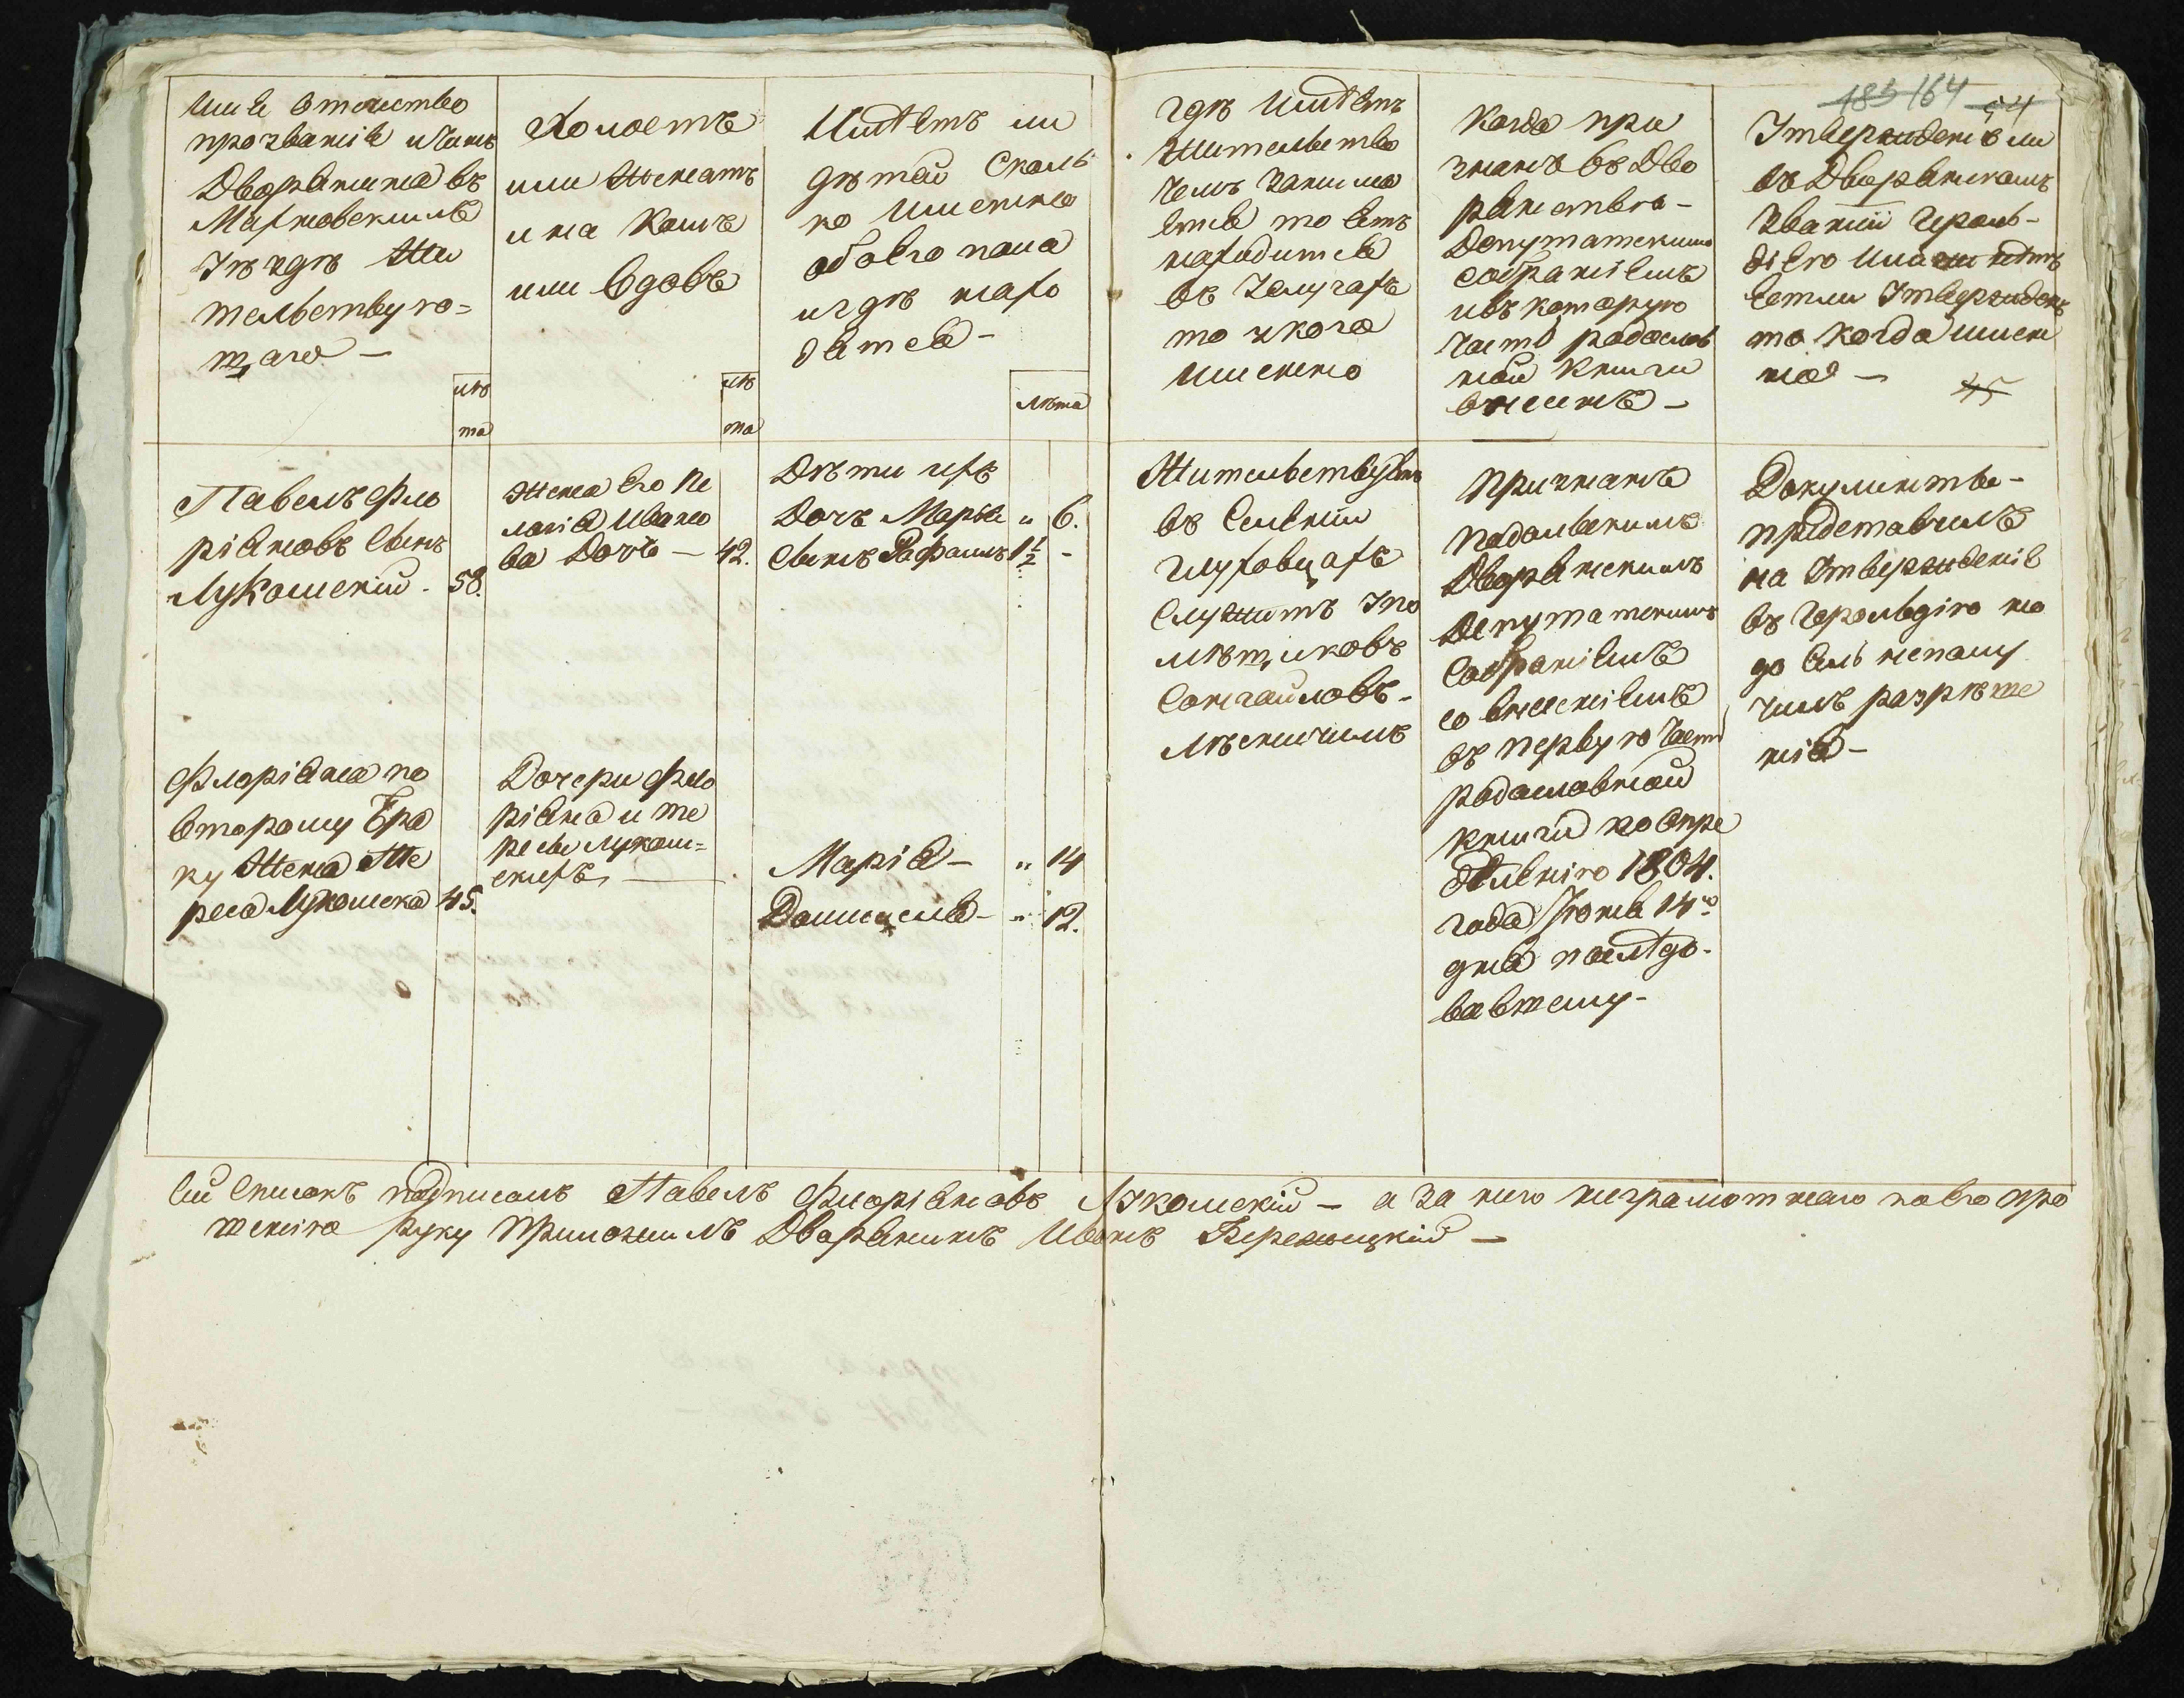 185 164 54
Имя Отечество
прозваніе и чинъ
Дворянина въ
Махновскимъ
Уѣздѣ Жи
тельствую=
щаго —
лѣ
та
Холостъ
или Женатъ
и на комъ
или вдовъ
лѣ
та
Имѣетъ ли
дѣтей сколь
ко именно
обоего пола
и гдѣ нахо
дятся —
лѣта
гдѣ имѣетъ
жительство
чемъ занима
ется то есть
находится
въ услугахъ
то у кого
именно
Когда при
знанъ въ Дво
рянство —
Депутатскимъ
собраніемъ
и въ которую
часть родослов
ной книги
внесенъ —
Утвержденъ ли
въ Дворянскомъ
званіи Героль-
діею или нѣтъ
естли утвержденъ
то когда имен
но —
45
Павелъ Фло
ріановъ сынъ
Лукомскій . 58.
Жена его Пе
лагія Ивано
ва Дочь — 42.
Дѣти ихъ
Дочь Марья „ 6.
Сынъ Рафаилъ 1½ -
Жительствуетъ
въ Селеніи
Глуховцахъ
Служитъ у по
мѣщиковъ
Сонгайловъ -
лѣсничимъ
Признанъ
Подольскимъ
Дворянскимъ
Депутатскимъ
Собраніемъ
со внесеніемъ
въ первую часть
родословной
книги по опре
дѣленію 1804.
года Іюня 14го
дня послѣдо-
вавшему -
Документы -
представилъ
на утвержденіе
въ Герольдію но
до селѣ неполу
чилъ разрѣше
нія —
Флоріана по
второму бра
ку Жена Те
реса Лукомска 45.
Дочери Фло
ріана и Те
ресы Луком=
скихъ — .
Марія — „ 14
Домицеля — „ 12.
Сей списокъ подписалъ Павелъ Флоріановъ Лукомскій — а за него неграмотнаго по его про
шенію руку приложилъ Дворянинъ Иванъ Бережицкій —